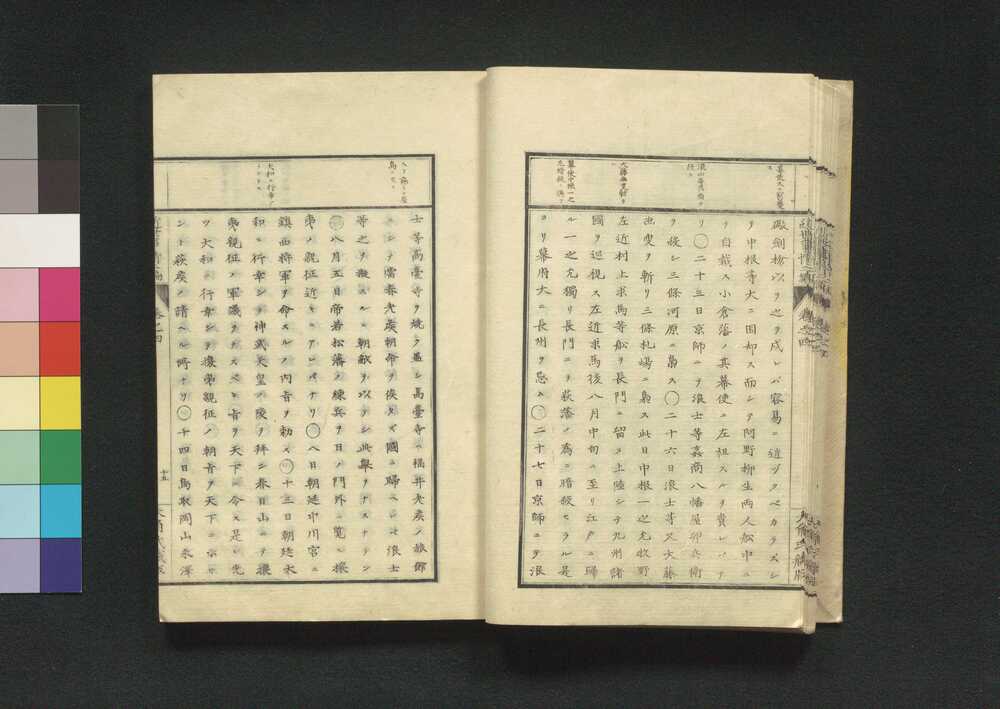 礮劍槍以ヲ之ヲ戍レバ容易ニ近ヅクベカラズシ
テ中根等大ニ困却ス而シテ阿野柳生両人舩中ニ
テ自裁ス小倉藩ノ其幕使ニ左祖スルヲ責レバナ
リ〇二十三日京師ニテ浪士等姦商八幡屋卯兵衛
ヲ殺シ三條河原ニ梟ス〇二十六日浪士等又大藤
幽叟ヲ斬リ三條札場ニ梟ス此日中根一之允牧野
左近村上求馬等船ヲ長門ニ留メ上陸シテ九州諸
國ヲ巡視ス左近求馬後八月中旬ニ至リ江戸ニ歸
ル一之允獨リ長門ニテ萩藩ノ為ニ暗殺セラル是
ヨリ幕府大ニ長州ヲ惡ム〇二十七日京師ニテ浪
大藤幽叟斬ラ
幕使中根一之
允暗殺ニ遇フ
士等高臺寺ヲ焼ク蓋シ高臺寺ハ福井老矦ノ旅館
ニシテ
等之ヲ擬スルニ朝敵ヲ以テシ此舉ヲナスナラン
〇八月五日帝若松藩ノ練兵ヲ日ノ門外ニ覧シ攘
夷ノ親征近キニアレバナリ〇八日朝廷中川宮ニ
鎮西将軍ヲ命スルノ内旨ヲ勅ス〇十三日朝廷大
和ニ行幸シテ神武天皇ノ陵ヲ拜シ春日山ニテ攘
夷親征ノ軍議ヲナスベキ旨ヲ天下ニ令ス是レ先
ヅ大和ニ行幸シテ後弟親征ノ朝旨ヲ天下ニ示サ
ント萩矦ノ請ヘル所ナリ〇十四日鳥取岡山米澤
大和ニ行幸ノ
十五